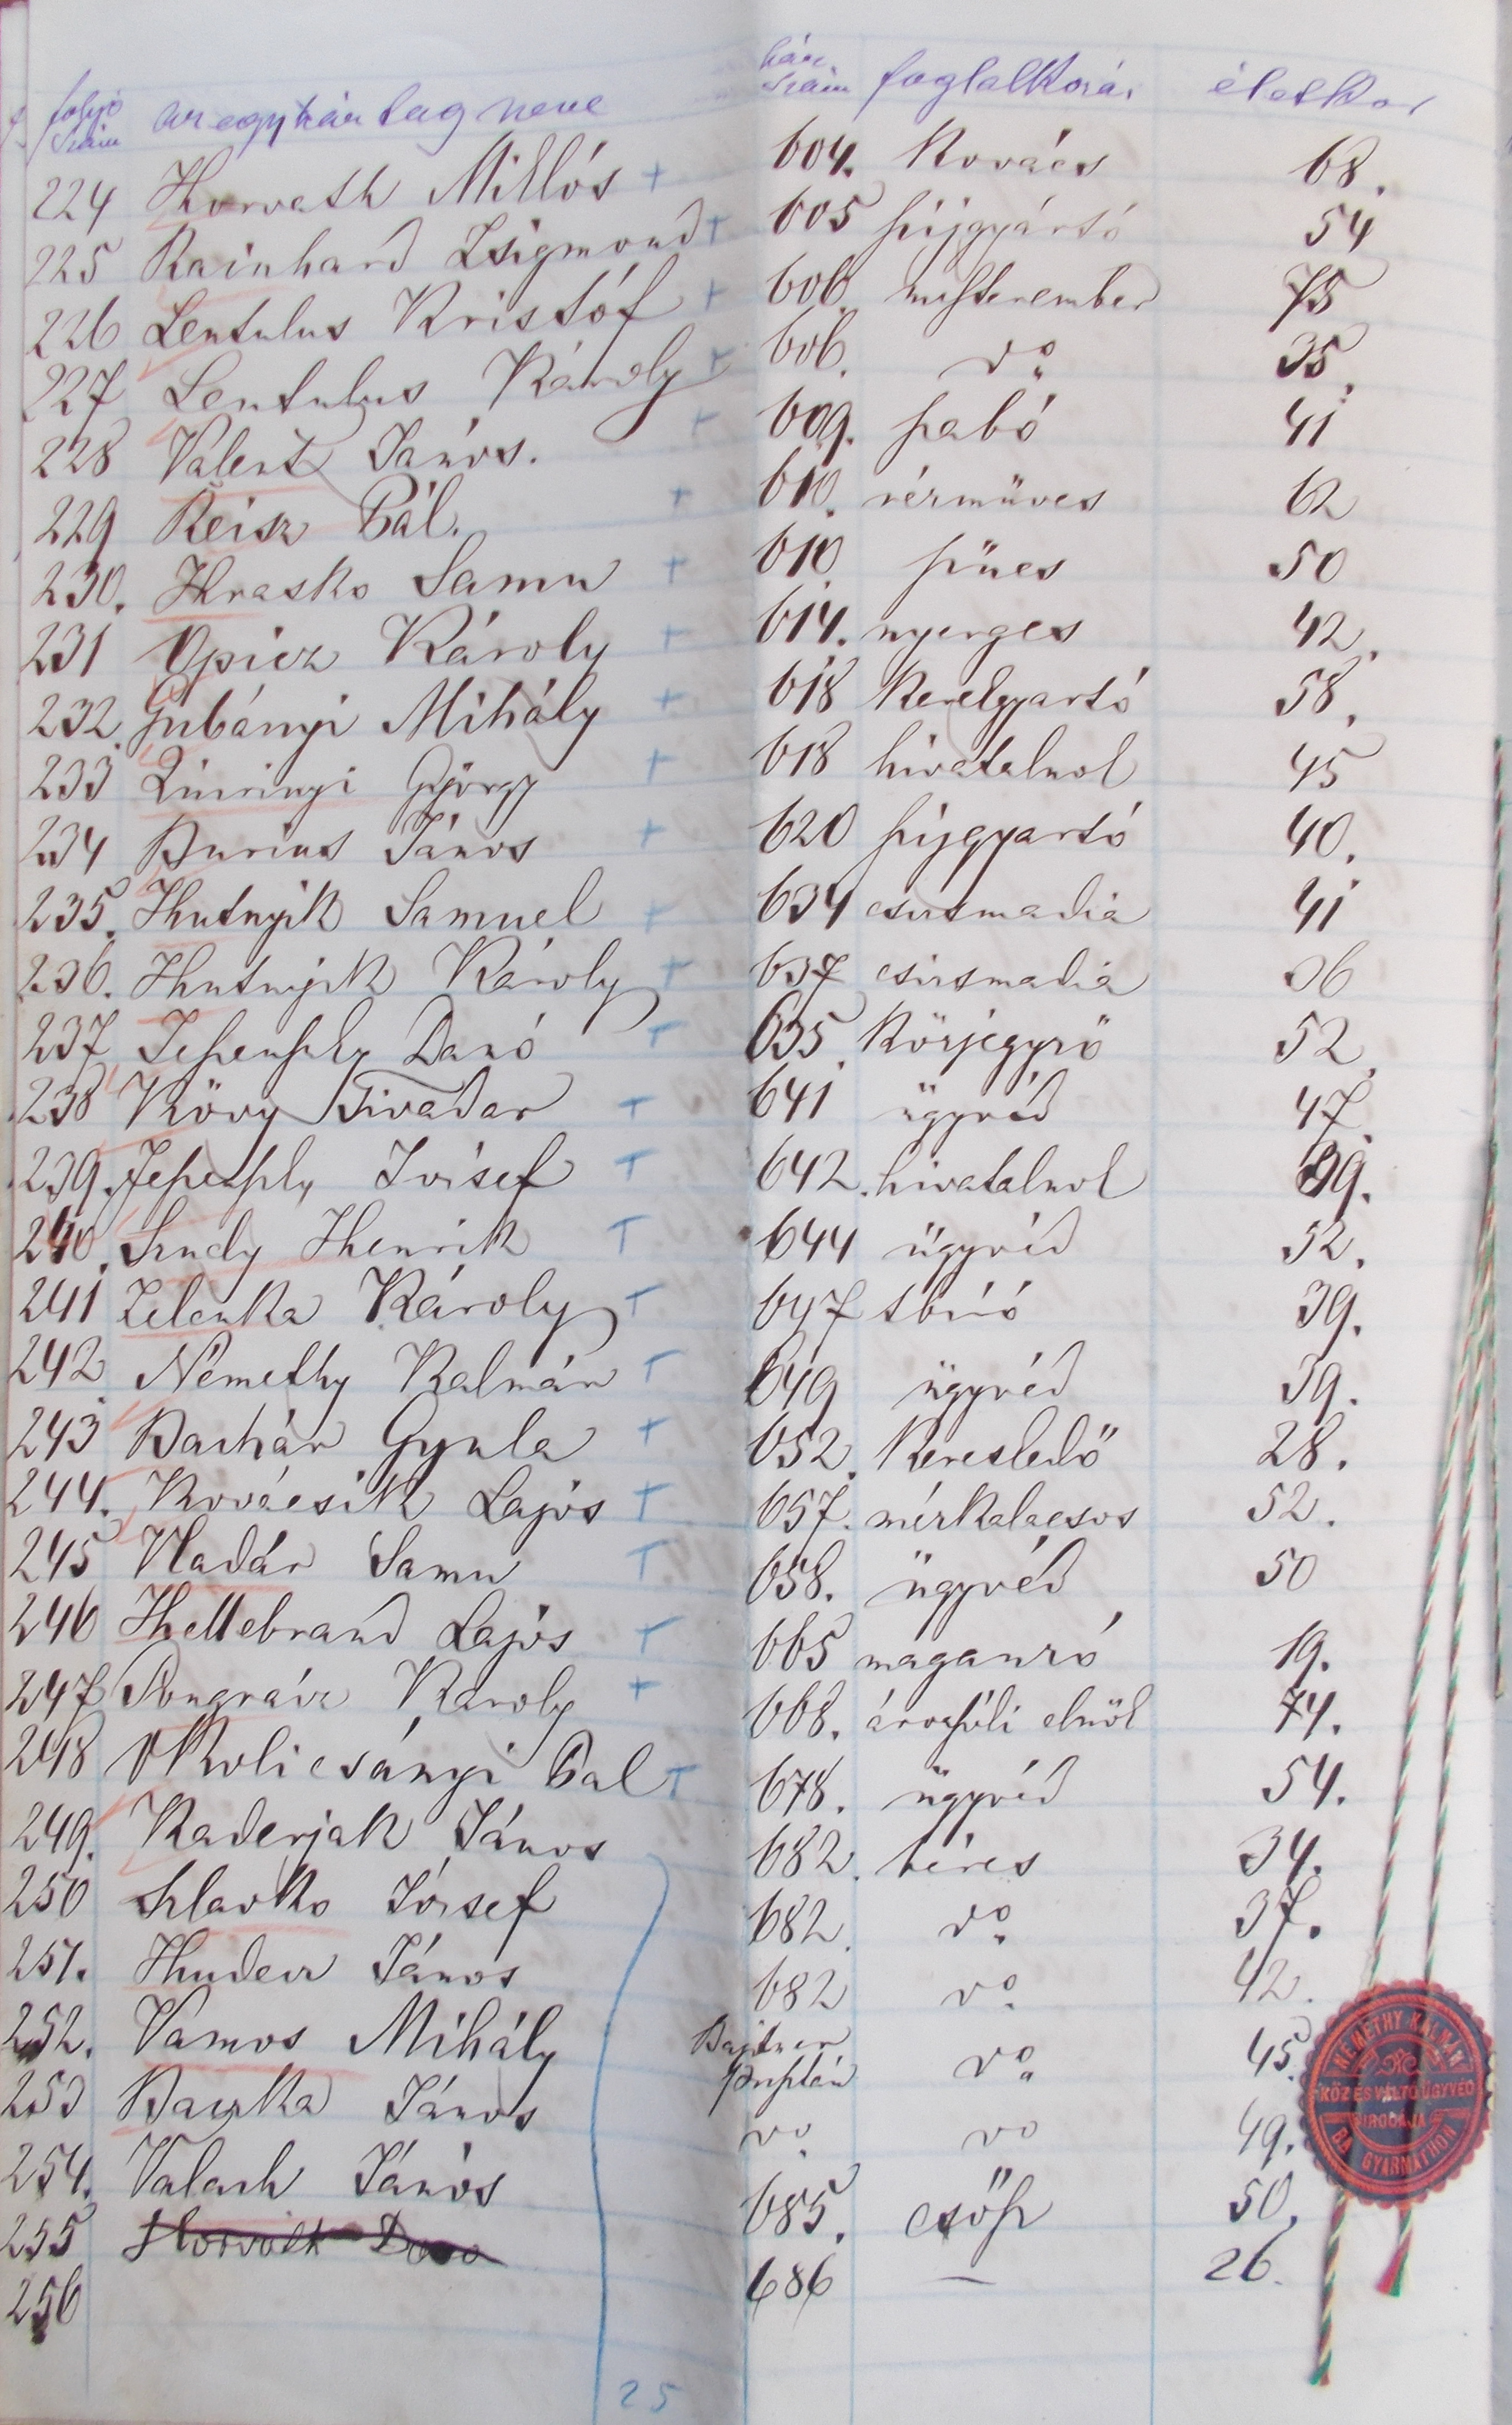 folyó szám az egyház tag neve ház szám foglalkozás életkor
224 Horvath Miklós + 604. Kovács 68.
225 Rainhard Zsigmond + 605 szijgyártó 54
226 Lentulus Kristóf + 606. mesterember 75
227 Lentulus Károly + 606. do 35.
228 Valent János. + 609. szabó 41
229 Reisz Pál. + 610. rézmüves 62
230. Hrasko Samu + 610 szücs 50
231 Opicz Károly + 614. nyerges 42.
232. Gubányi Mihály + 618 Kerékgyartó 58.
233 György + 618 hivatalnok 45
234 Burius János + 620 szijgyartó 40.
235. Hutnyik Samuel + 634 csizsmadia 41
236. Hutnyik Károly + 637 csizsmadia 36
237 Jeszenszky Danó + 635 Körjegyző 52.
238 Kövy Tivadar + 641 ügyvéd 47.
239. Jeszenszky József + 642. hivatalnok 39.
240. Szudy Henrik + 644 ügyvéd 52.
241 Zelenka Károly + 647 tbiró 39.
242. Némethy Kalmán + 649 ügyvéd 39.
243 Bachár Gyula + 652. Kereskedő 28.
244. Kovácsik Lajos + 657. mézkalacsos 52.
245 Madár Samu + 658. ügyvéd 50
246 Hellebrand Lajos + 665 maganzó 19.
247 Pongrácz Karoly + 668. árvaszéki elnök 74.
248 Okolicsányi Pal + 678. ügyvéd 54.
249. Kaderjak János 682. béres 34.
250 Szlavko József 682. do 37.
251. Hudecz János 682 do 42.
252. Vamos Mihály do 45.
253 Baczka János do do 49.
254. Valach János 685. csősz 50.
255 Horváth 686 — 26.
256
25
NÉMETHY KÁLMÁN
KÖZ ÉS VÁLTÓ ÜGYVÉD
IRODÁJA
B.A. GYARMATHON